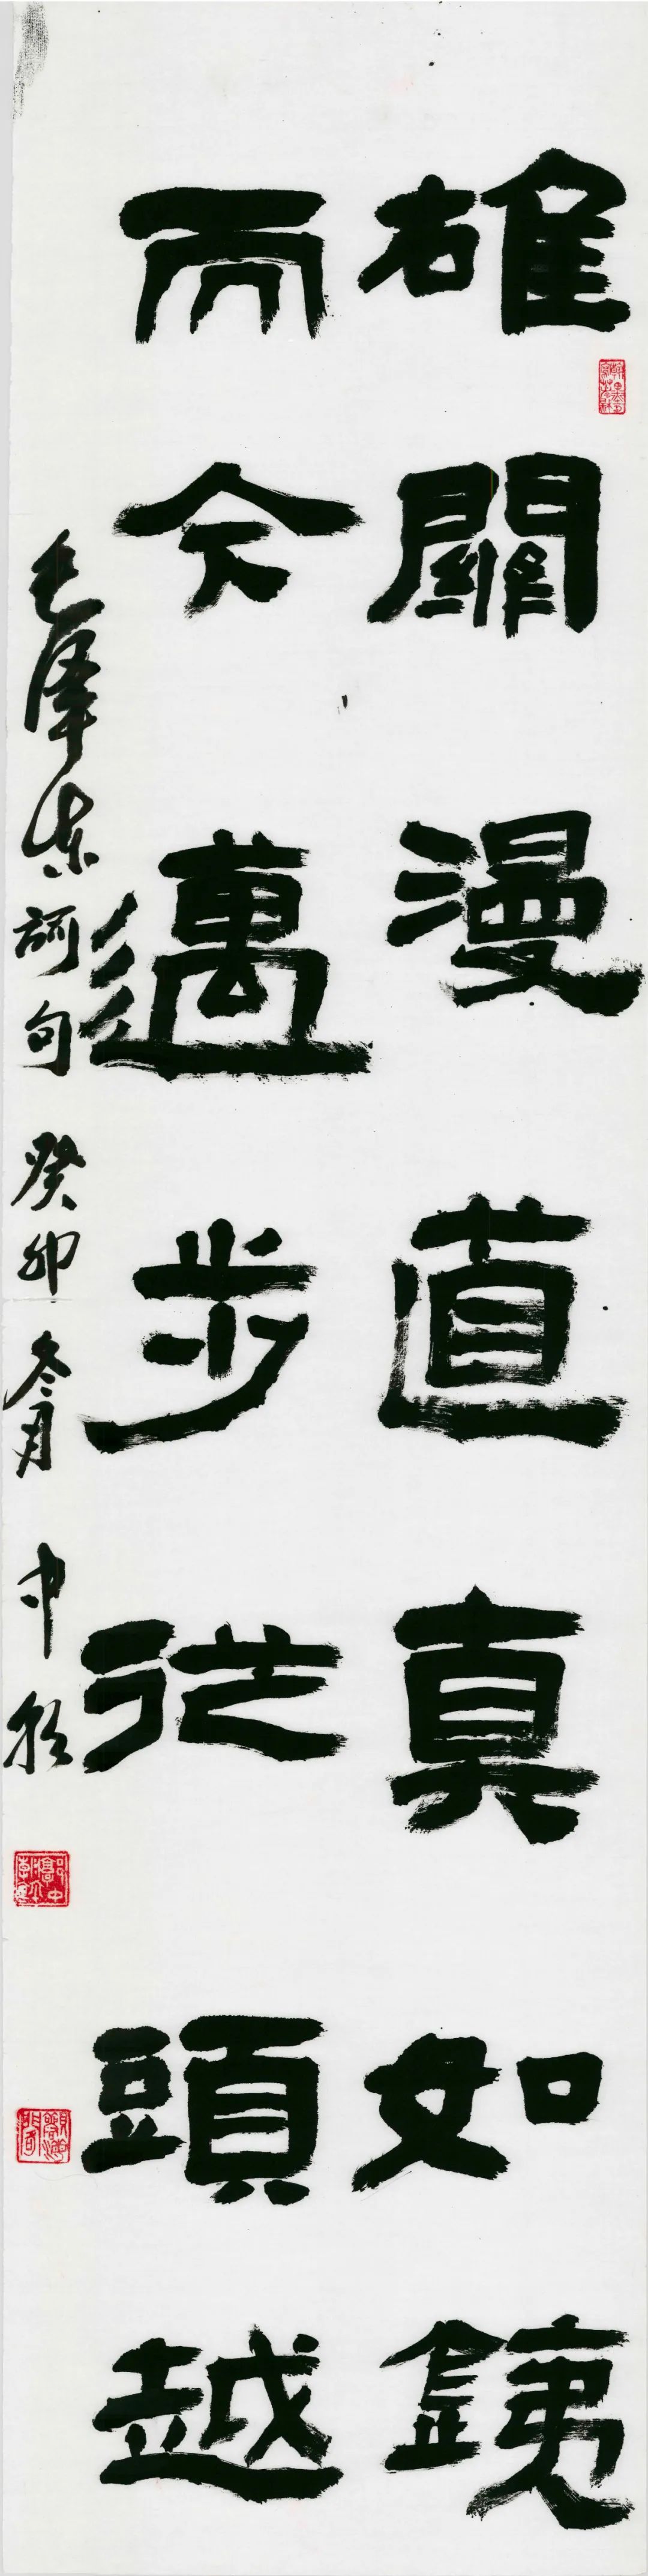 雄關漫直真如銕
而今邁步從頭越
毛泽东詞句 癸卯冬月 中